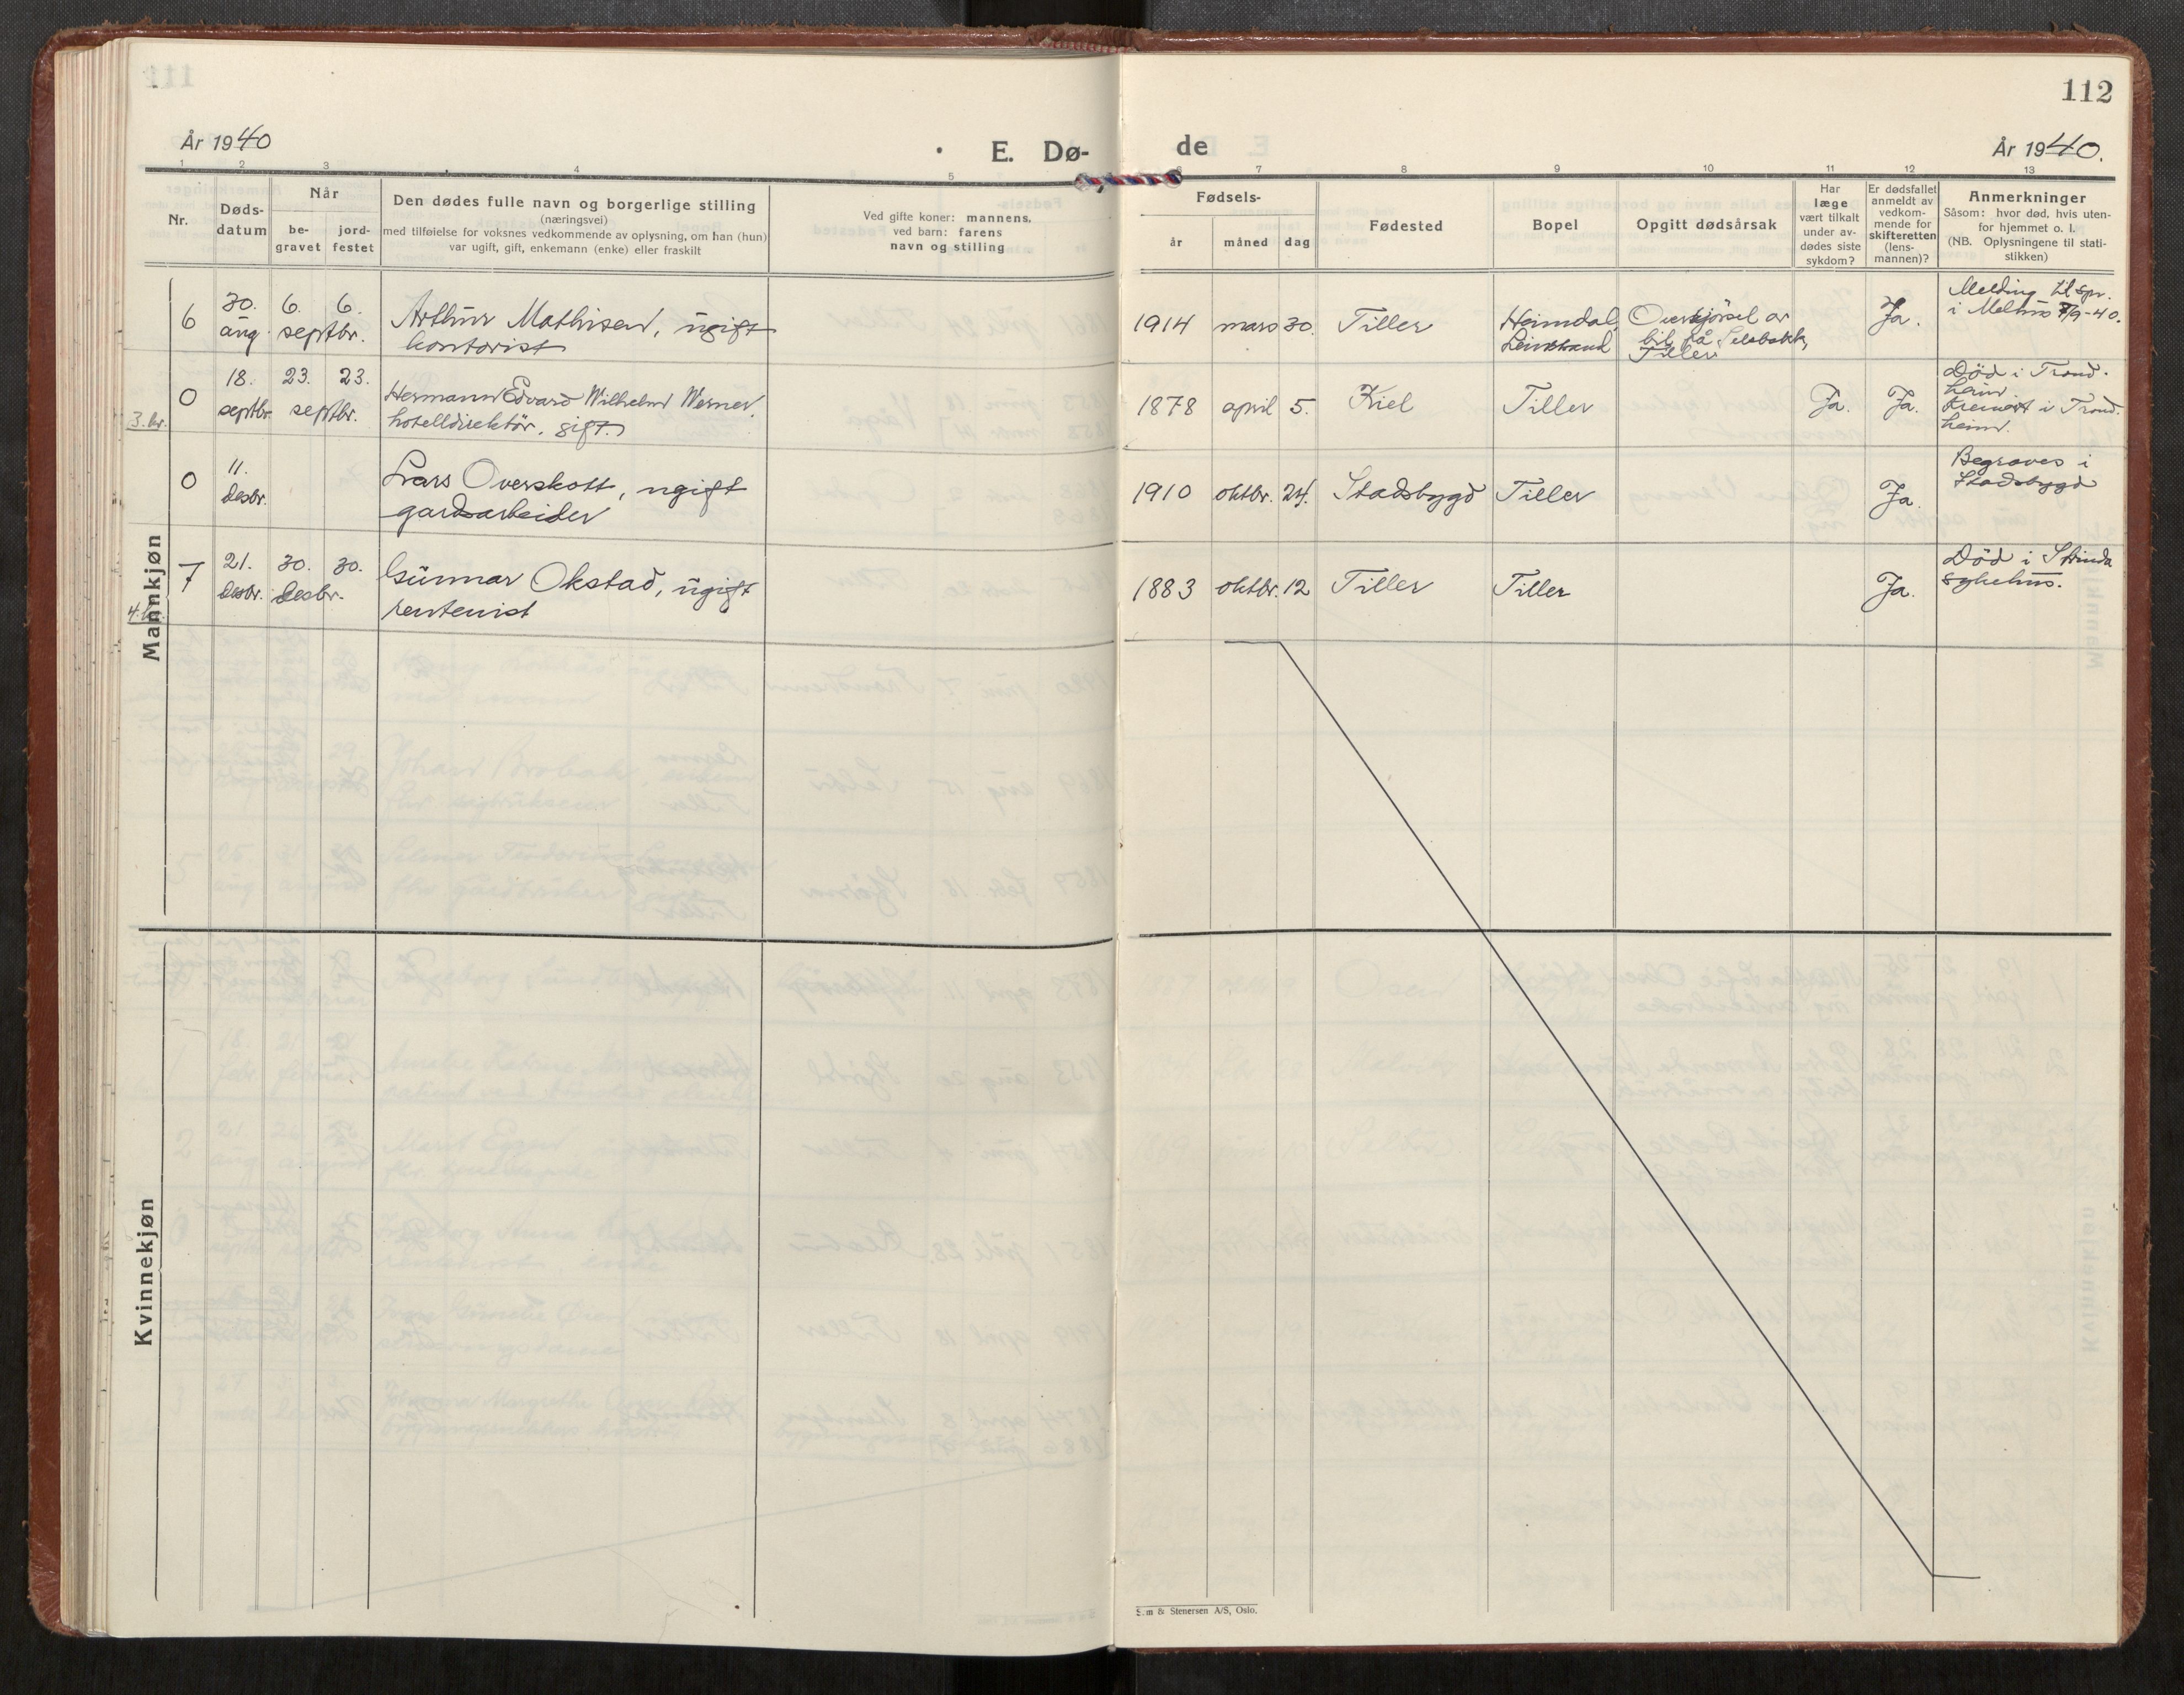 112
År 1940
E. Dø-
de
År 1940.
1 2 3 4 5
6 7 8 9 10 11 12 13
Nr.
Døds-
datum
Når
be-
gravet
jord-
festet
Den dødes fulle navn og borgerlige stilling
(næringsvei)
med tilføielse for voksnes vedkommende av oplysning, om han (hun)
var ugift, gift, enkemann (enke) eller fraskilt
Ved gifte koner: mannens,
ved barn: farens
navn og stilling
Fødsels-
år
måned
dag
Fødested
Bopel
Opgitt dødsårsak
Har
læge
vært tilkalt
under av-
dødes siste
sykdom?
Er dødsfallet
anmeldt av
vedkom-
mende for
skifteretten
(lens-
mannen)?
Anmerkninger
Såsom: hvor død, hvis uten-
for hjemmet o. l.
(NB. Oplysningene til stati-
stikken)
Mannkjøn
6
30.
aug.
6. 6.
septbr.
Arthur Mathisen, ugift
kontorist
1914 mars 30. Tiller
Heimdal,
Leinstrand
Overkjørsel av
bil på
Tiller
Ja.
Melding til spr.
i Melhus 7/9-40.
3. kv.
0
18.
septbr.
23. 23.
septbr.
Hermann Edvard Wilhelm Werner,
hotelldirektør, gift.
1878 april 5. Kiel Tiller Ja. Ja.
Død i Trond-
heim
Kremert i Trond-
heim.
0
11.
desbr.
Lars Overskott, ugift
gardsarbeider
1910 oktbr. 24. Stadsbygd Tiller Ja.
Begraves i
Stadsbygd
4. kv.
7
21.
desbr.
30. 30.
desbr.
Gunnar Okstad, ugift
rentenist
1883 oktbr. 12 Tiller Tiller Ja.
Død i Strinda
sykehus.
Kvinnekjøn
Sem & Stenersen A/S, Oslo.